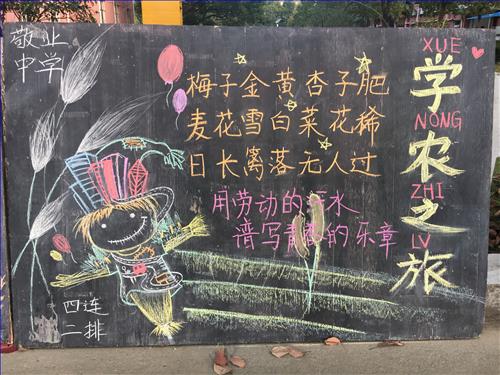 敬业
中学
梅子金黄杏子肥
麦花雪白菜花稀
日长篱落无人过
用劳动的汗水
谱写青春的乐章
XUE
学
NONG
农
ZHI
之
LV
旅
四连
二排